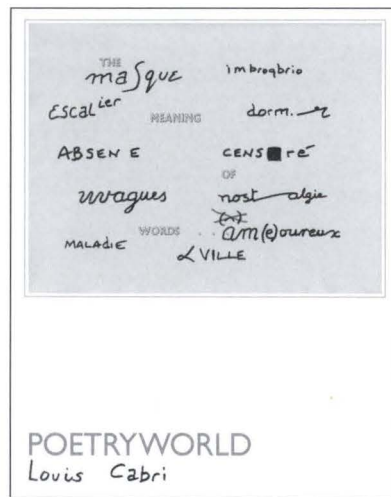 THE
maSque imbrogbrio
EScalier MEANING dorm.r
ABSEN E CENS■ré
OF
uvagues nostalgie
(x)
WORDS . . am(e)oureux
MALADiE
LVILLE
POETRYWORLD
Louis Cabri